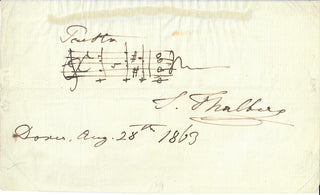 Presto
S. Thalberg
Dover, Aug. 28th 1863